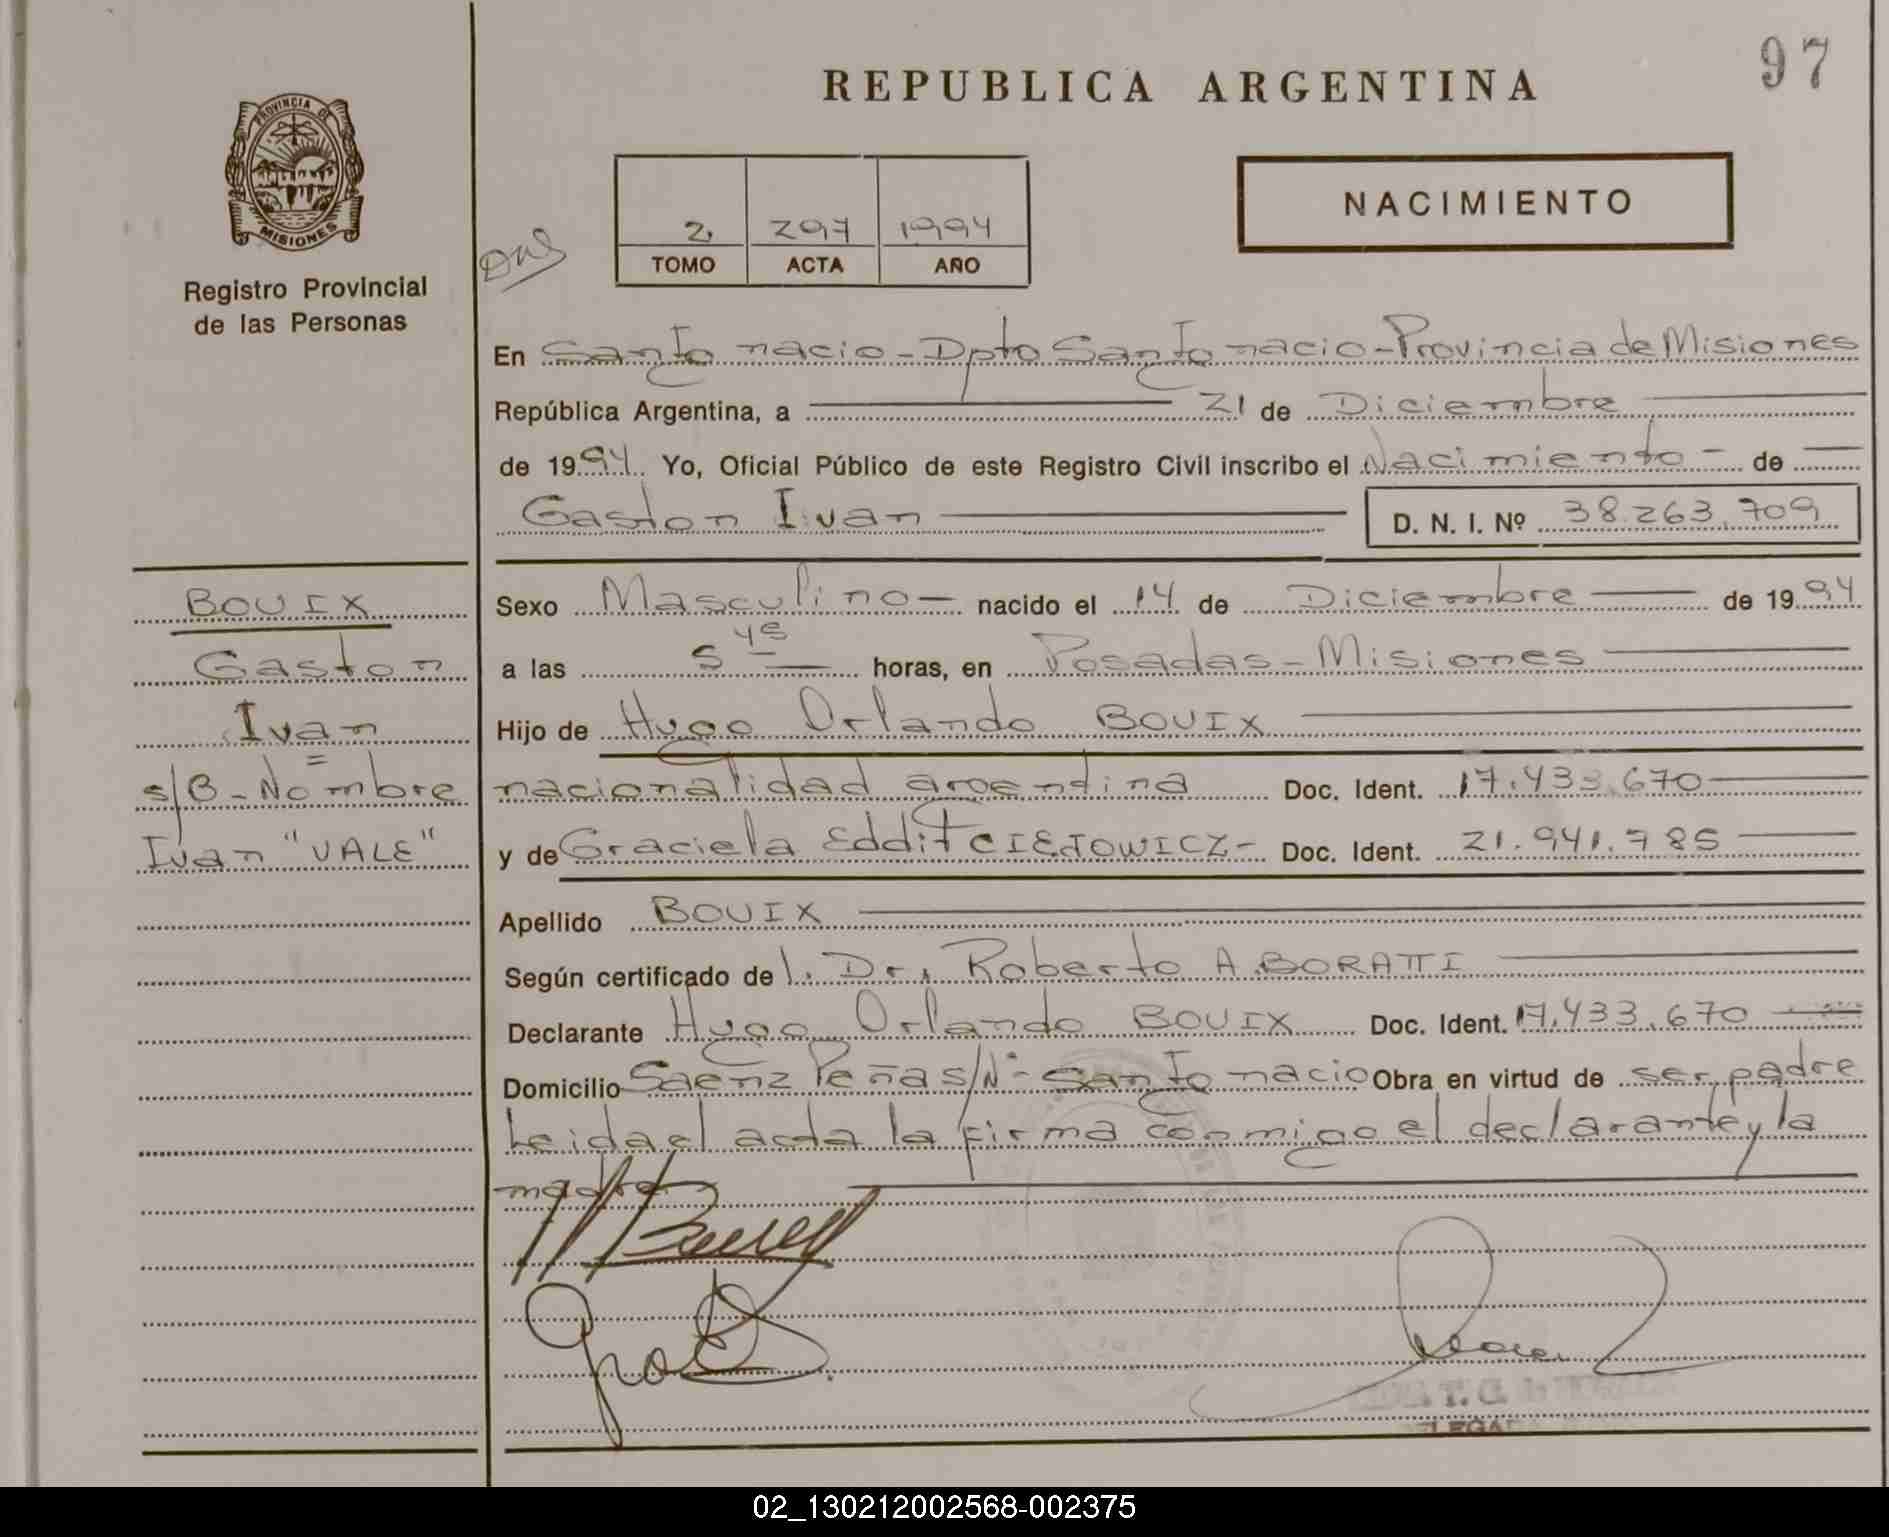 97
REPUBLICA ARGENTINA
PROVINCIA DE
MISIONES
Registro Provincial
de las Personas
2 297 1994
TOMO ACTA AÑO
NACIMIENTO
En San Ignacio - Dpto San Ignacio - Provincia de Misiones
República Argentina, a 21 de Diciembre
de 1994. Yo, Oficial Público de este Registro Civil inscribo el Nacimiento - de
Gaston Ivan D. N. I. Nº 38.263.709
BOUIX
Sexo Masculino - nacido el 14 de Diciembre de 1994
Gaston
a las 5 45 horas, en Posadas - Misiones
Ivan
Hijo de Hugo Orlando BOUIX
s/B - Nombre
nacionalidad argentina Doc. Ident. 17.433.670
Ivan "VALE"
y de Graciela Eddit CIEJOWICZ - Doc. Ident. 21.941.785
Apellido BOUIX
Según certificado de l. Dr. Roberto A. BORATTI
Declarante Hugo Orlando BOUIX Doc. Ident. 17.433.670
Domicilio Saenz Peña s/Nº - San Ignacio Obra en virtud de ser padre
Leida el acta la firma conmigo el declarante y la
madre
02_130212002568-002375